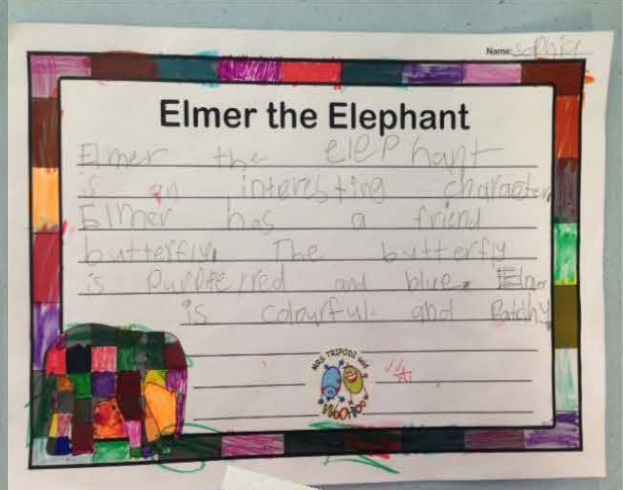 Name: Sophie
Elmer the Elephant
Elmer the elephant
is an interesting character
Elmer has a friend
butterfly. The butterfly
is purple, red and blue. Elmer
is colourful and Patchy
MRS TRIPODI said
WooHoo